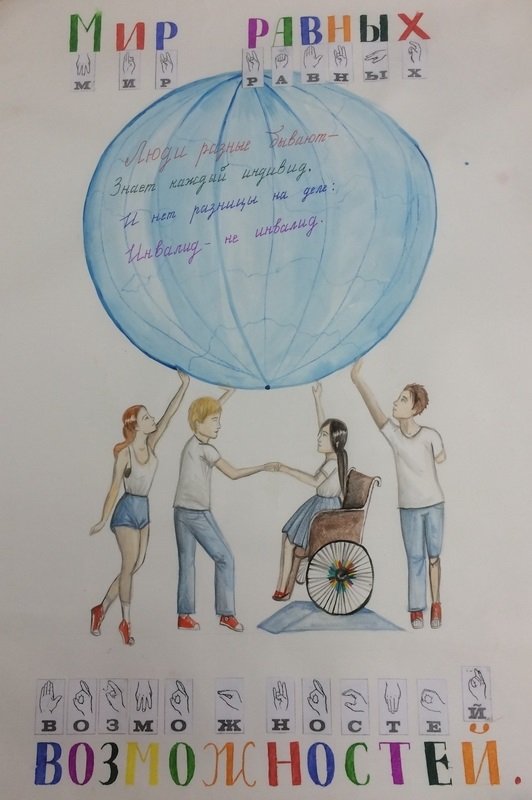 Мир равных
М И Р Р А В Н Ы Х
Люди разные бывают –
Знает каждый индивид.
И нет разницы на деле:
Инвалид – не инвалид.
В О З М О Ж Н О С Т Е Й
ВОЗМОЖНОСТЕЙ.